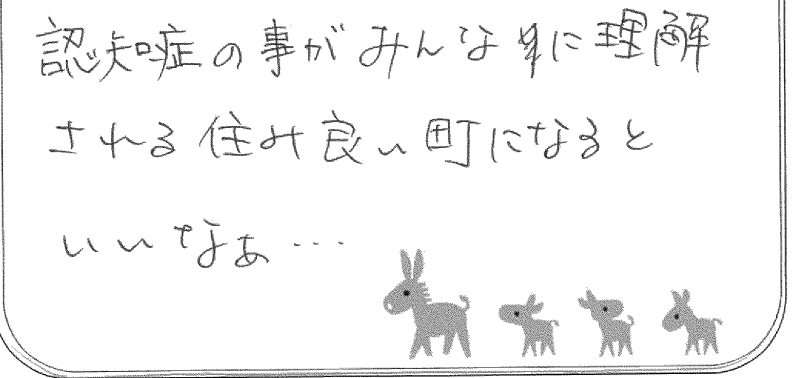 認知症の事がみんなに理解
される住み良い町になると
いいなぁ…